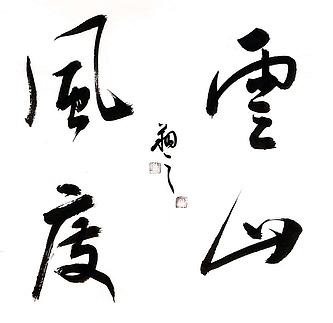 雲山
風度